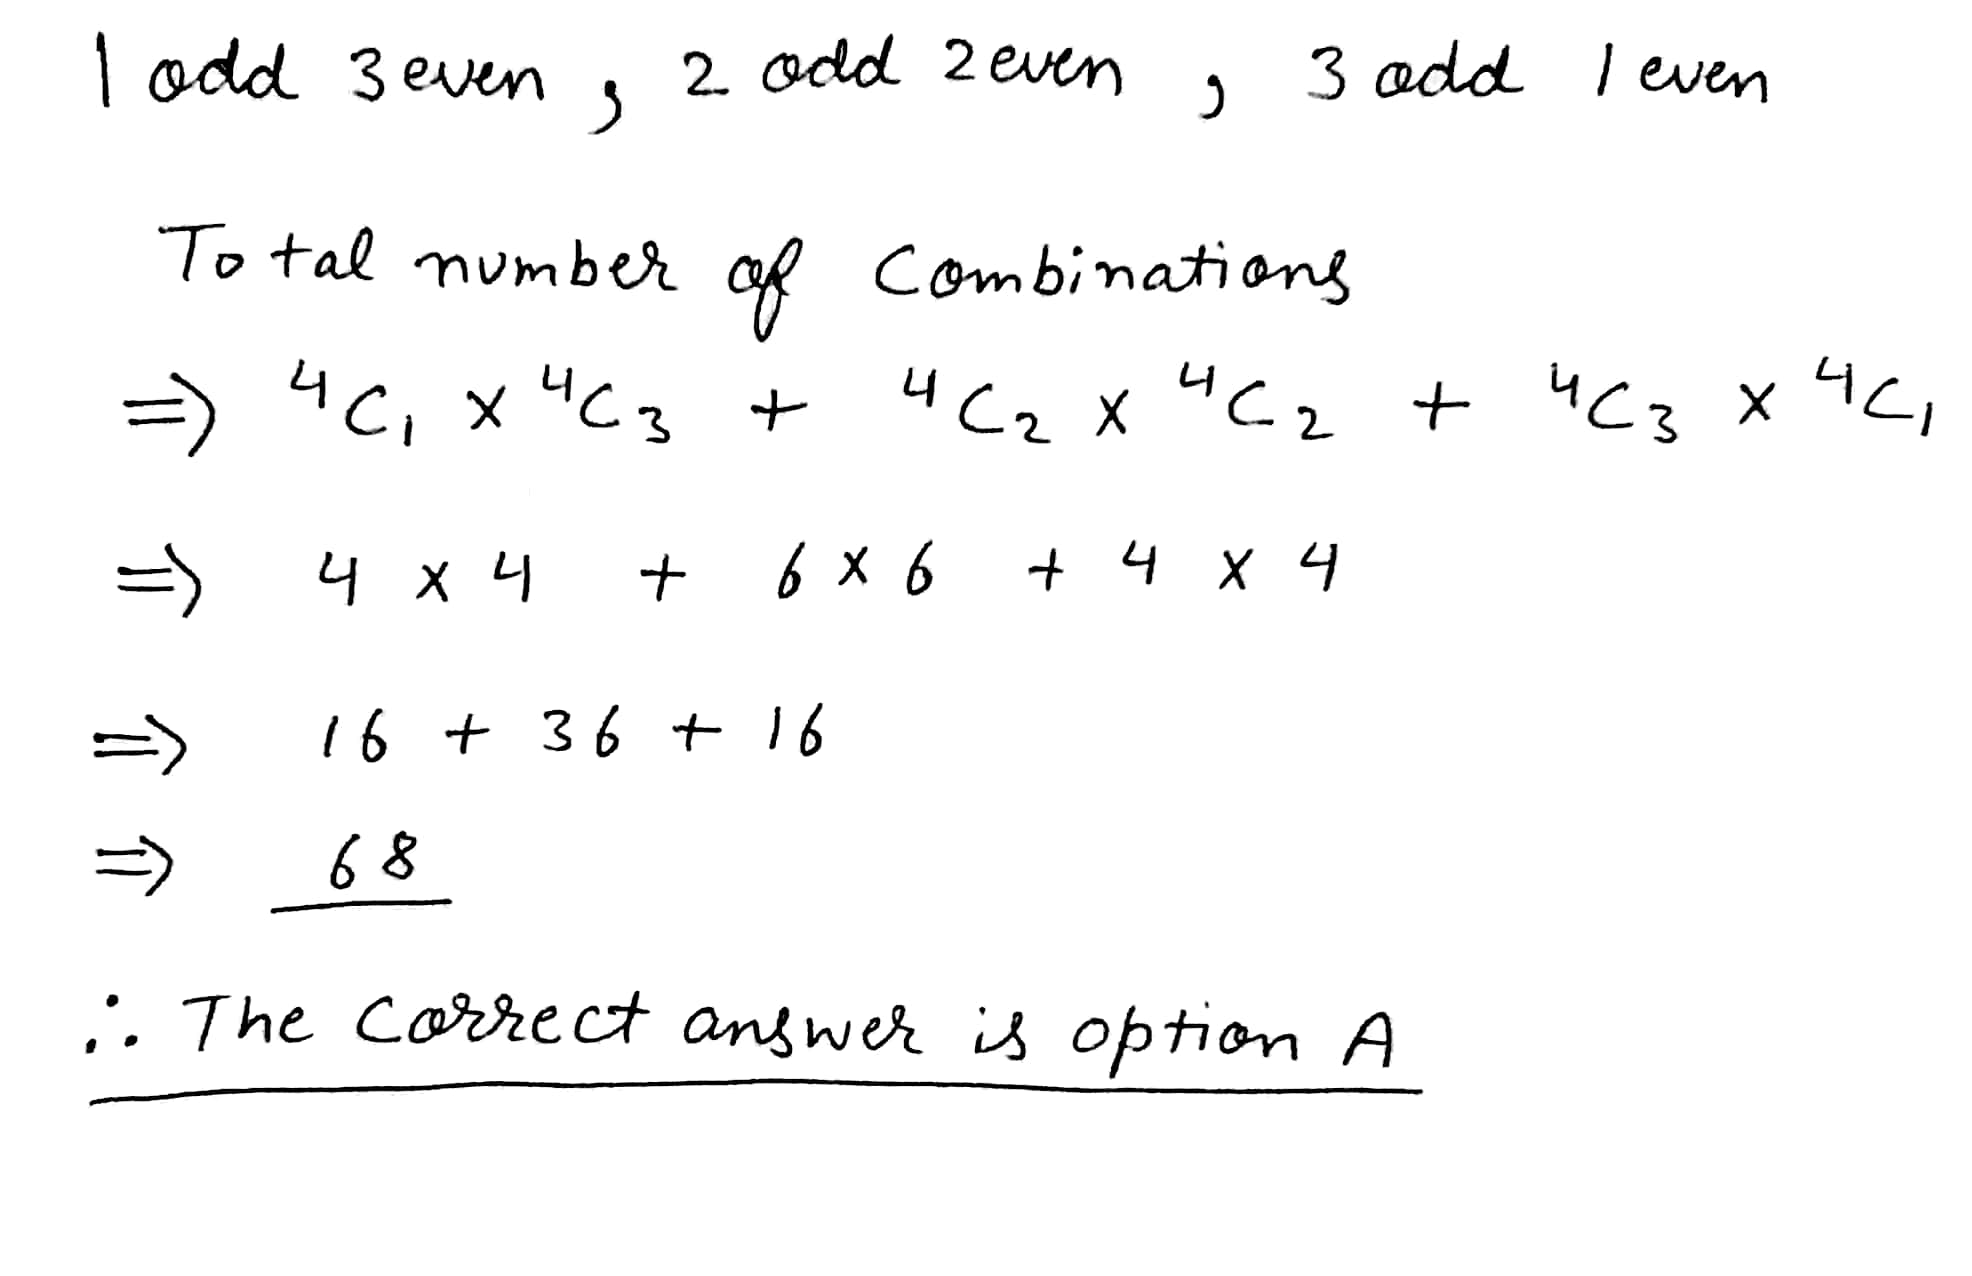 1 odd 3 even , 2 odd 2 even , 3 odd 1 even
Total number of Combinations
=> ⁴C₁ × ⁴C₃ + ⁴C₂ × ⁴C₂ + ⁴C₃ × ⁴C₁
=> 4 × 4 + 6 × 6 + 4 × 4
=> 16 + 36 + 16
=> 68
∴ The Correct answer is option A